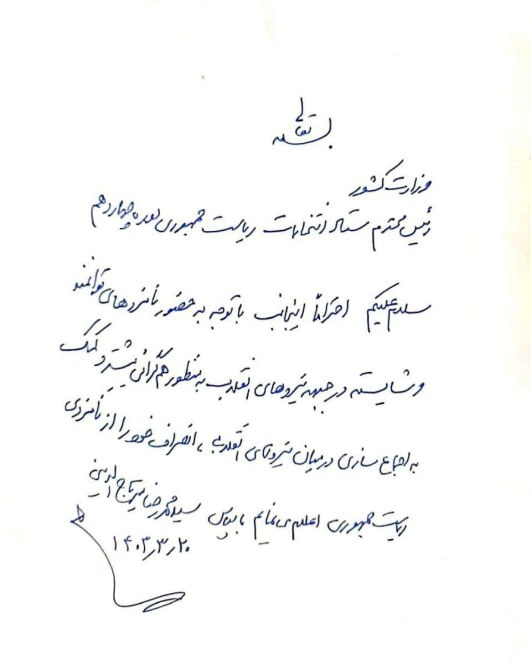 بسمه تعالی
وزارت کشور
رئیس محترم ستاد انتخابات ریاست جمهوری دوره چهاردهم
سلام علیکم احتراماً اینجانب با توجه به حضور نامزدهای توانمند
و شایسته در جبهه نیروهای انقلاب به منظور هم‌گرائی بیشتر و کمک
به اجماع سازی در میان نیروهای انقلابی، انصراف خود را از نامزدی
ریاست جمهوری اعلام می نمایم باسپاس سیدمحمدرضا میرتاج الدینی
۱۴۰۳٫۳٫۲۰